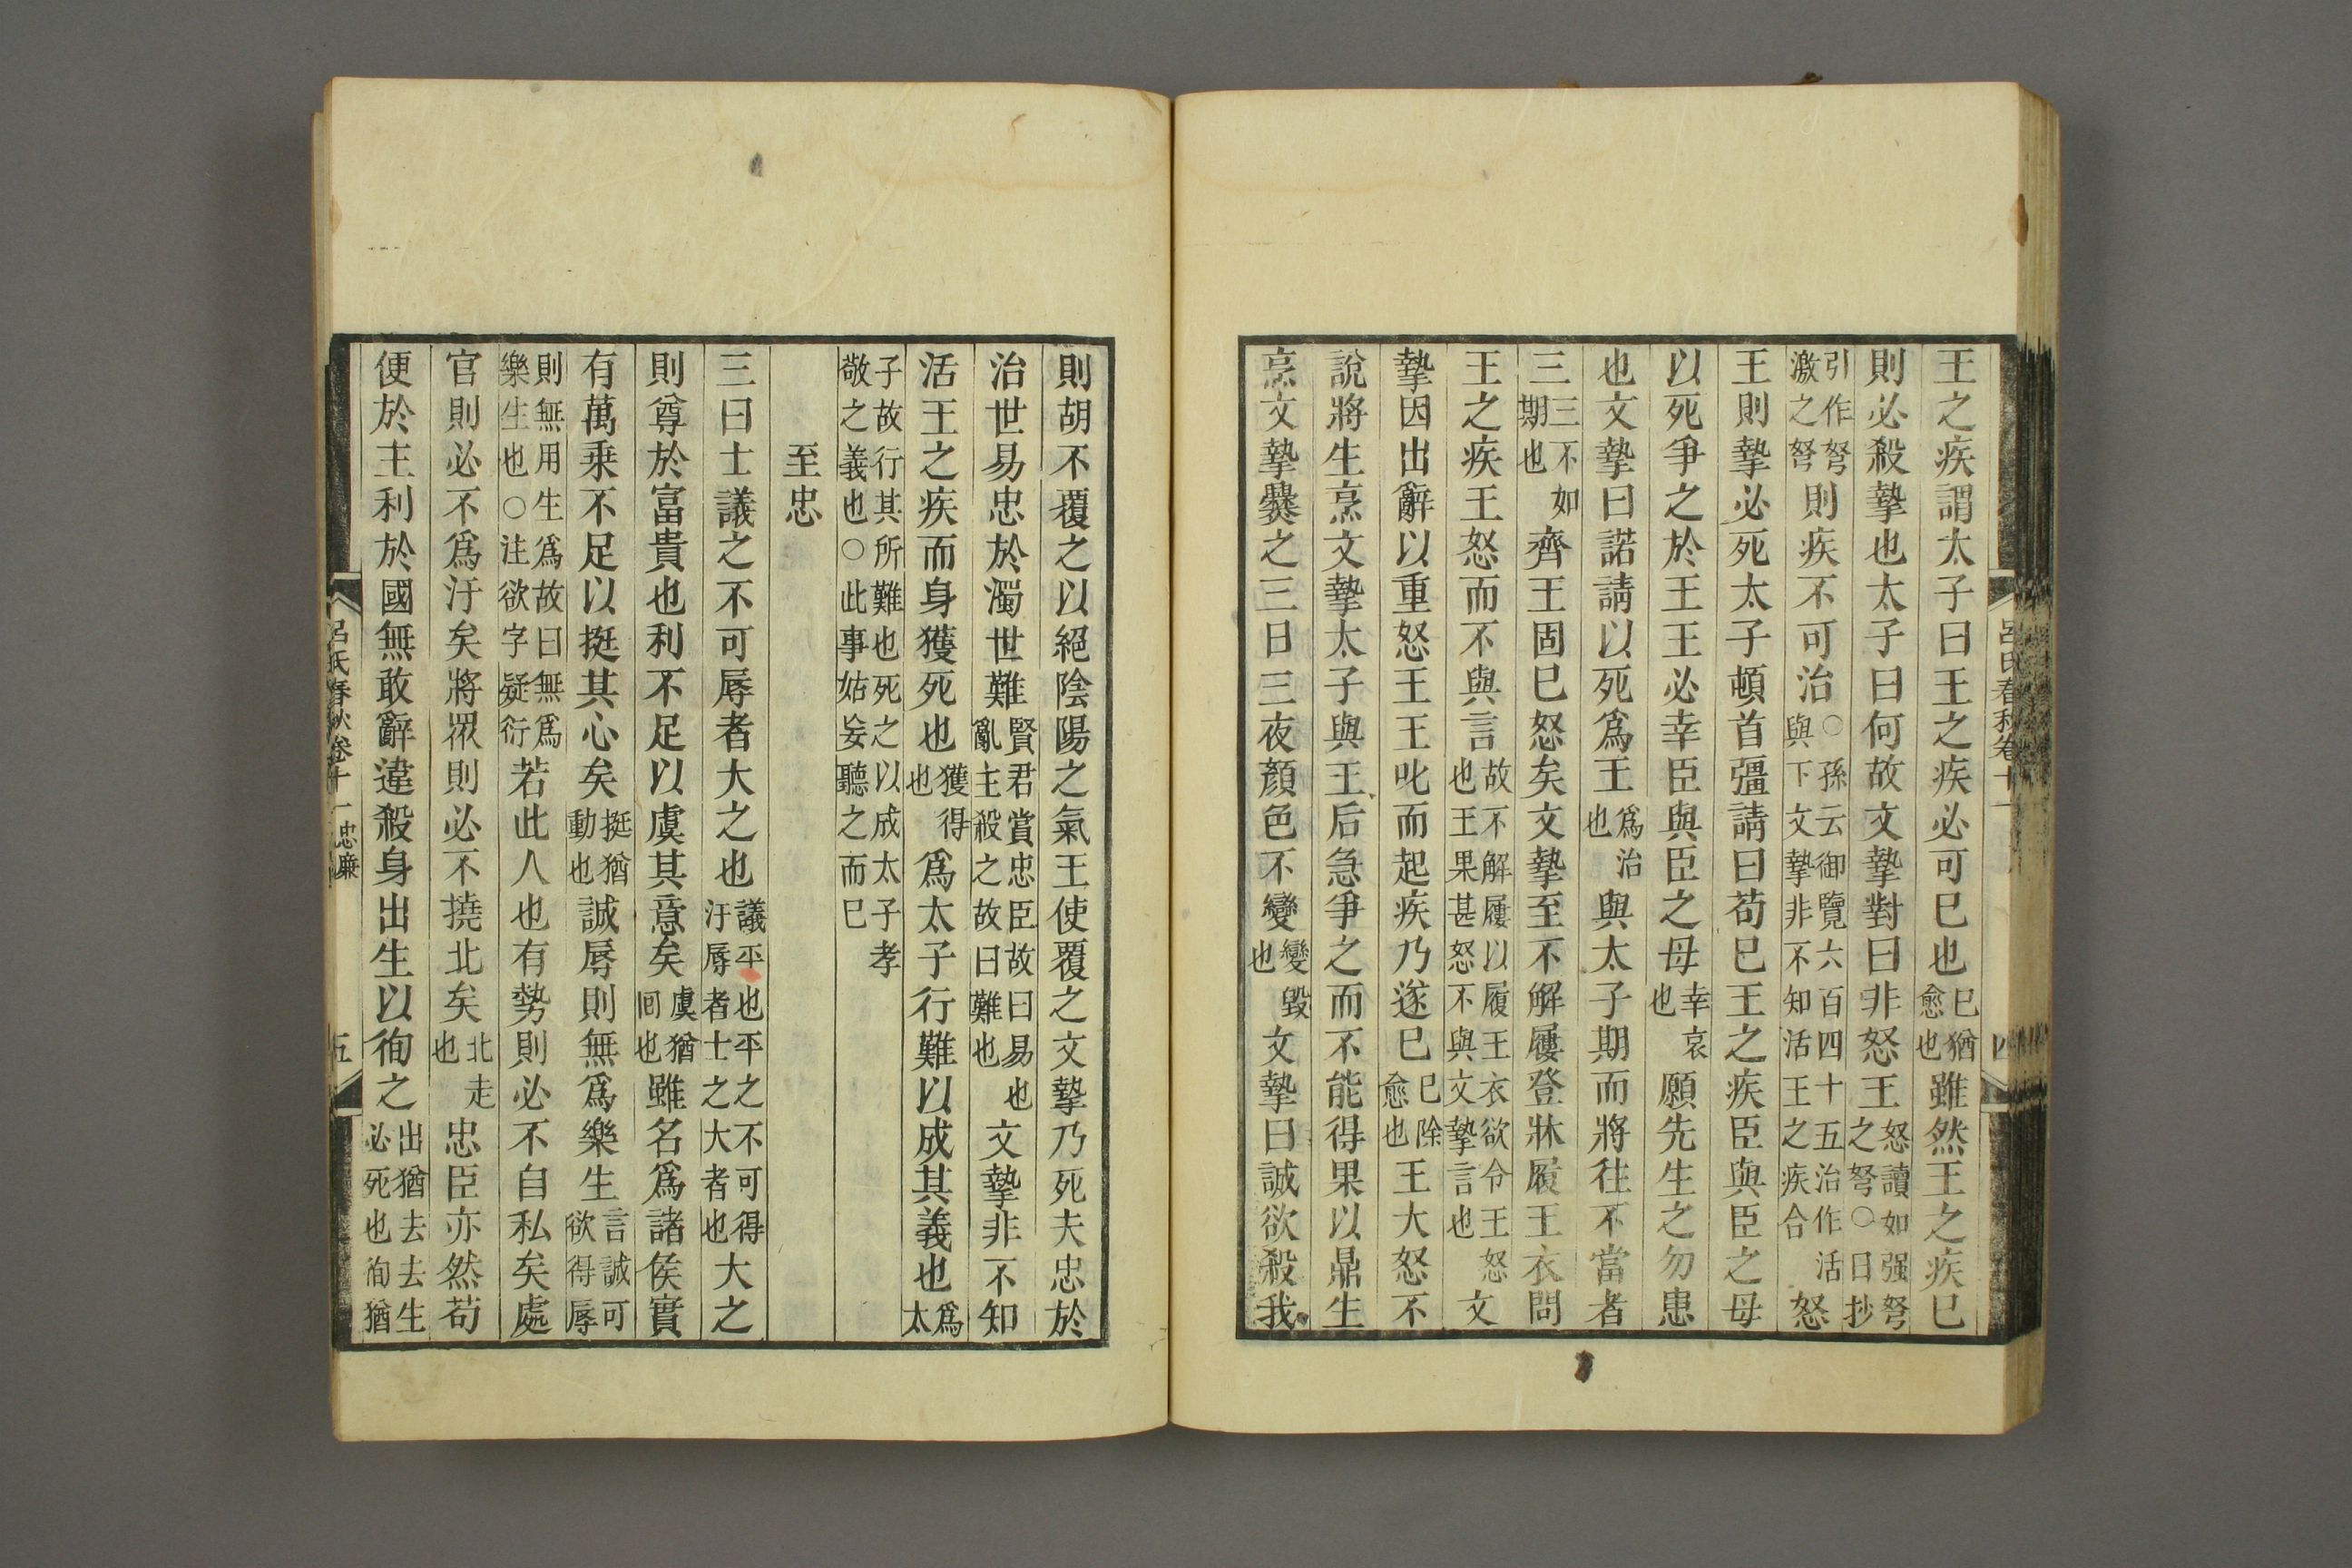 呂氏春秋卷十一
四
王之疾謂太子曰王之疾必可已也已猶愈也雖然王之疾已
則必殺摯也太子曰何故文摯對曰非怒王怒讀如强弩之弩○日抄
引作弩激之弩則疾不可治○孫云御覽六百四十五治作活與下文摯非不知活王之疾合怒
王則摯必死太子頓首彊請曰苟已王之疾臣與臣之母
以死爭之於王王必幸臣與臣之母幸哀也願先生之勿患
也文摯曰諾請以死爲王爲治也與太子期而將往不當者
三三不如期也齊王固已怒矣文摯至不解屨登牀履王衣問
王之疾王怒而不與言故不解屨以履王衣欲令王怒也王果甚怒不與文摯言也文
摯因出辭以重怒王王叱而起疾乃遂已已除愈也王大怒不
說將生烹文摯太子與王后急爭之而不能得果以鼎生
烹文摯爨之三日三夜顏色不變變毀也文摯曰誠欲殺我
則胡不覆之以絕陰陽之氣王使覆之文摯乃死夫忠於
治世易忠於濁世難賢君賞忠臣故曰易也亂主殺之故曰難也文摯非不知
活王之疾而身獲死也獲得也爲太子行難以成其義也爲太
子故行其所難也死之以成太子孝敬之義也○此事姑妄聽之而已
至忠
三曰士議之不可辱者大之也議平也平之不可得汙辱者士之大者也大之
則尊於富貴也利不足以虞其意矣虞猶回也雖名爲諸侯實
有萬乗不足以挺其心矣挺猶動也誠辱則無爲樂生言誠可欲得辱
則無用生爲故曰無爲樂生也○注欲字疑衍若此人也有勢則必不自私矣處
官則必不爲汙矣將眾則必不撓北矣北走也忠臣亦然苟
便於主利於國無敢辭違殺身出生以徇之出猶去去生必死也徇猶
呂氏春秋卷十一忠廉
五